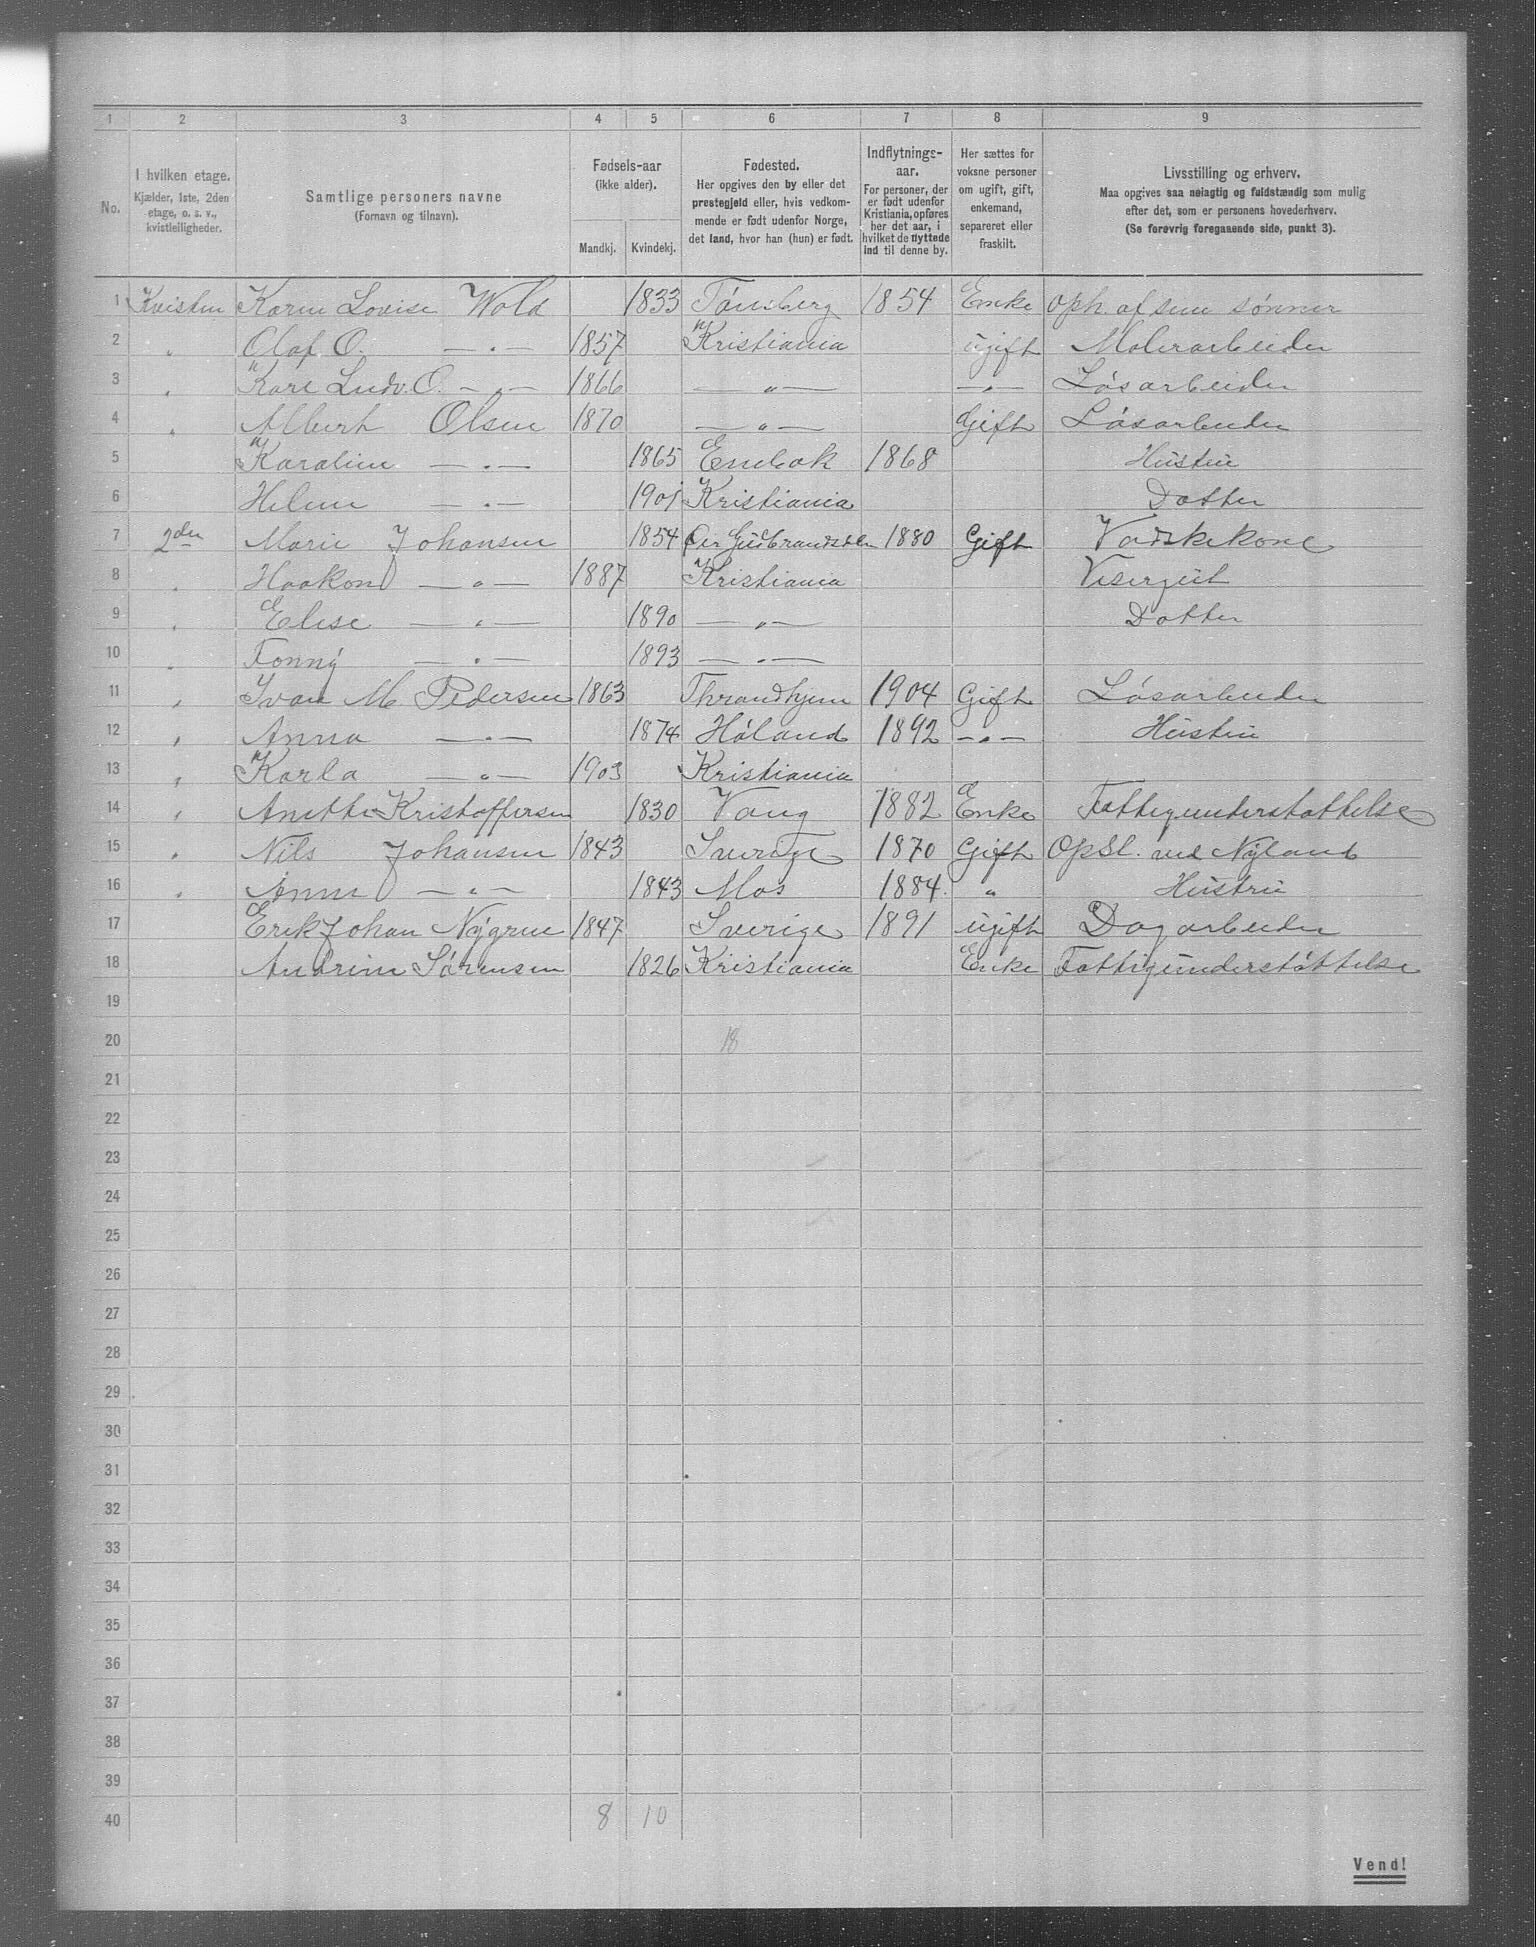 1 2 3 4 5 6 7 8 9
No.
I hvilken etage.
Kjælder, 1ste, 2den
etage, o. s. v.,
kvistleiligheder.
Samtlige personers navne
(Fornavn og tilnavn).
Fødsels-aar
(ikke alder).
Mandkj. Kvindekj.
Fødested.
Her opgives den by eller det
prestegjeld eller, hvis vedkom-
mende er født udenfor Norge,
det land, hvor han (hun) er født.
Indflytnings-
aar.
For personer, der
er født udenfor
Kristiania, opføres
her det aar, i
hvilket de flyttede
ind til denne by.
Her sættes for
voksne personer
om ugift, gift,
enkemand,
separeret eller
fraskilt.
Livsstilling og erhverv.
Maa opgives saa nøiagtig og fuldstændig som mulig
efter det, som er personens hovederhverv.
(Se forøvrig foregaaende side, punkt 3).
1 Kvisten Karen Lovise Wold 1833 Tønsberg 1854 Enke oph. af sine sønner
2 " Olaf O. — " — 1857 Kristiania ugift Malerarbeider
3 " Karl Ludv. O. — " — 1866 — " — — " — Løsarbeider
4 " Albert Olsen 1870 — " — Gift Løsarbeider
5 Karoline — " — 1865 Enebak 1868 Hustru
6 Helene — " — 1901 Kristiania Datter
7 2den Marie Johansen 1854 Gudbrandsdalen 1880 Gift Vadskekone
8 " Haakon — " — 1887 Kristiania Visergut
9 " Elise — " — 1890 — " — Datter
10 " Fanny — " — 1893 — " —
11 " Ivan M Pedersen 1863 Thrandhjem 1904 Gift Løsarbeider
12 " Anna — " — 1874 Høland 1892 — " — Hustru
13 " Karla — " — 1903 Kristiania
14 " Anette Kristoffersen 1830 Vang 1882 Enke Fattigunderstøttelse
15 " Nils Johansen 1843 Sverige 1870 Gift Opsl. ved Nyland
16 " Anne — " — 1843 Mos 1884 " Hustru
17 Erik Johan Nygren 1847 Sverige 1891 ugift Dagarbeider
18 Andrine Sørensen 1826 Kristiania Enke Fattigunderstøttelse
19
20 18
21
22
23
24
25
26
27
28
29
30
31
32
33
34
35
36
37
38
39
40 8 10
Vend!